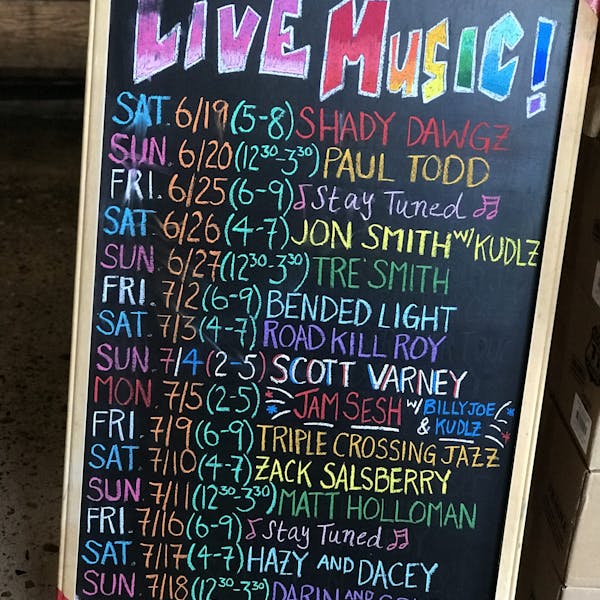 LIVE MUSIC!
SAT. 6/19 (5-8) SHADY DAWGZ
SUN. 6/20 (12³⁰-3³⁰) PAUL TODD
FRI. 6/25 (6-9) ♫ Stay Tuned ♫
SAT. 6/26 (4-7) JON SMITH w/ KUDLZ
SUN. 6/27 (12³⁰-3³⁰) TRE SMITH
FRI. 7/2 (6-9) BENDED LIGHT
SAT. 7/3 (4-7) ROAD KILL ROY
SUN. 7/4 (2-5) SCOTT VARNEY
MON. 7/5 (2-5) JAM SESH w/ BILLY JOE & KUDLZ
FRI. 7/9 (6-9) TRIPLE CROSSING JAZZ
SAT. 7/10 (4-7) ZACK SALSBERRY
SUN. 7/11 (12³⁰-3³⁰) MATT HOLLOMAN
FRI. 7/16 (6-9) ♫ Stay Tuned ♫
SAT. 7/17 (4-7) HAZY AND DACEY
SUN. 7/18 (12³⁰-3³⁰) DARIN AND